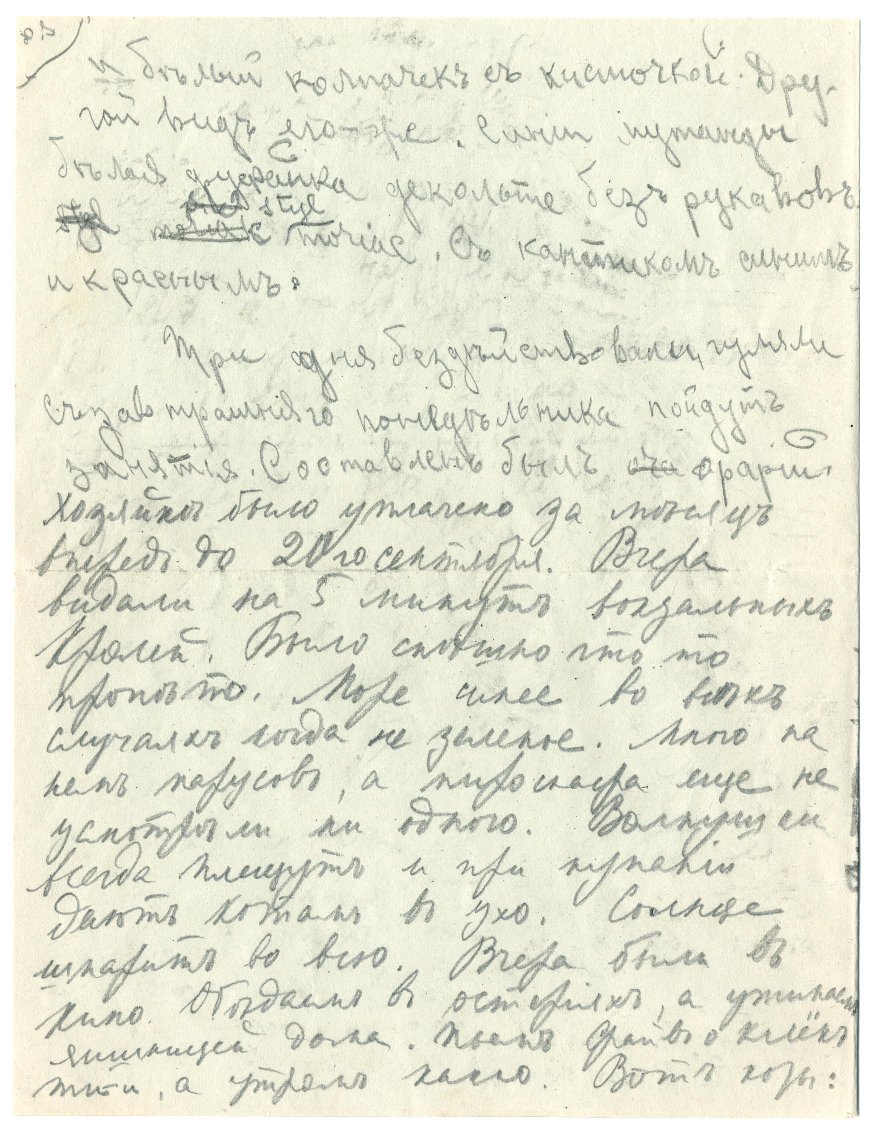 и бѣлый колпачекъ съ кисточкой. Дру-
гой видъ его-же. Синіи
бѣлая фуфайка декольте безъ рукавовъ.
style точіас. Съ кантикомъ синимъ
и краснымъ.
Три дня бездѣйствовали, гуляли
съ завтрашняго понедѣльника пойдутъ
занятія. Составленъ былъ орарій.
Хозяйкѣ было уплачено за мѣсяцъ
впередъ до 20го сентября. Вчера
видали на 5 минутъ вокзальныхъ
Кролей. Было смѣшно что то
Море синее во всѣхъ
случаяхъ когда не зеленое. Много на
немъ парусовъ, а пироскафа еще не
усмотрѣли ни одного. Волнищи
всегда плещутъ и при купаніи
даютъ котамъ въ ухо. Солнце
шпаритъ во всю. Вчера были въ
кино. Обѣдаемъ въ остеріяхъ, а ужинаемъ
яишницей дома. Пьемъ
тти, а утромъ какао. Вотъ козы: